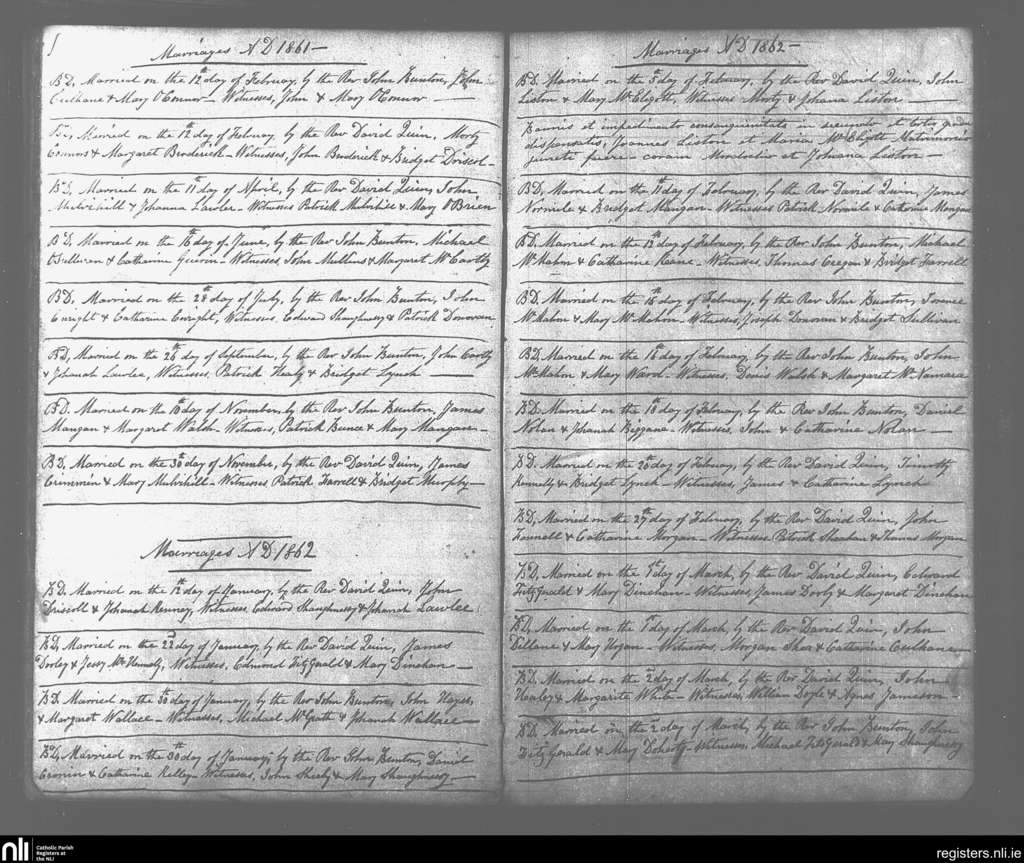 Marriages A D 1861—
BD. Married on the 12th day of February, by the Rev John Bunton, John
Culhane & Mary O'Connor— Witnesses, John & Mary O'Connor —
Married on the 12th day, of February, by the Rev David Quin, Morty
Connors & Margaret Broderick— Witnesses, John Broderick & Bridget Driscol—
BD. Married on the 11th day of April, by the Rev David Quin, John
Mulvihill & Johanna Lawler— Witnesses Patrick Mulvihill & Mary O'Brien
BD. Married on the 16th day of June, by the Rev John Bunton, Michael
O'Sulliven & Catharine — Witnesses, John Mullins & Margaret McCarthy
BD. Married on the 28th day of July, by the Rev John Bunton, John
Enright & Catharine Enright, Witnesses, Edward Shaughnessy & Patrick Donovan
BD, Married on the 26th day of September, by the Rev John Bunton, John Carthy
& Johanah Lawlee, Witnesses, Patrick Healy & Bridget Lynch —
BD. Married on the 10th day of November, by the Rev John Bunton, James
Mangan & Margaret Walsh— Witnesses, Patrick Bunce & Mary Mangan—
BD, Married on the 30th day of November, by the Rev David Quin, James
Crimmin & Mary Mulvihill— Witnesses Patrick Farrell & Bridget Murphy—
Marriages A D 1862
BD. Married on the 12th day of January, by the Rev David Quin, John
Driscoll & Johanah Kenney, Witnesses, Edward Shaughnessy & Johanah Lawlee
BD, Married on the 22nd day of January, by the Rev David Quin, James
Dorley & Jessy McKennely, Witnesses, Edmund FitzGerald & Mary Dinehan—
BD. Married on the 30th day of January, by the Rev John Bunton, John Hayes,
& Margaret Wallace— Witnesses, Michael McGrath & Johanah Wallace—
BD, Married on the 30th day of January, by the Rev John Bunton, Daniel
Cronin & Catharine Kelley— Witnesses, John Sheehy & Mary Shaughnessy—
Marriages A D 1862—
BD. Married on the 5th day of February, by the Rev David Quin, John
Liston & Mary McEligott, Witnesses Morty & Johana Liston —
Bannis et impedimento consanguinitatis in secundo et toto gradu
dispensatis, Joannes Liston et Maria McEligott Matrimonio
juncti fuere— coram Mordochio et Johanna Liston—
BD, Married on the 11th day of February, by the Rev David Quin, James
Normile & Bridget Mangan— Witnesses Patrick Normile & Catherine Mangan
BD. Married on the 13th day of February, by the Rev John Bunton, Michael
McMahon & Catharine Keane— Witnesses, Thomas Cregan & Bridget Farrell
BD. Married on the 16th day of February, by the Rev John Bunton, Terence
McMahon & Mary McMahon— Witnesses, Joseph Donovan & Bridget Sullivan
BD. Married on the 16th day of February, by the Rev John Bunton, John
McMahon & Mary Ward— Witnesses, Denis Walsh & Margaret McNamara
BD. Married on the 18th day of February, by the Rev John Bunton, Daniel
Nolan & Johanah Biggane— Witnesses, John & Catharine Nolan —
BD. Married on the 26th day of February, by the Rev David Quin, Timothy
Kennelly & Bridget Lynch— Witnesses, James & Catharine Lynch
BD, Married on the 27th day of February, by the Rev David Quin, John
Kennell & Catharine Morgan— Witnesses Patrick Sheahan & Thomas Morgan
BD, Married on the 1st day of March, by the Rev David Quin, Edward
FitzGerald & Mary Dinehan— Witnesses, James Dorly & Margaret Dinehan
BD, Married on the 1st day of March, by the Rev David Quin, John
Dillane & Mary Hogan— Witnesses, Morgan Shea & Catharine Culhane—
BD. Married on the 2nd day of March, by the Rev David Quin, John
Healey & Margarite White— Witnesses, William Doyle & Agnes Jameson
BD Married on the 2nd day of March, by the Rev John Bunton, John
FitzGerald & Mary Doherty— Witnesses, Michael FitzGerald & Mary Shaughnessy
nli Catholic Parish
Registers at
the NLI
registers.nli.ie